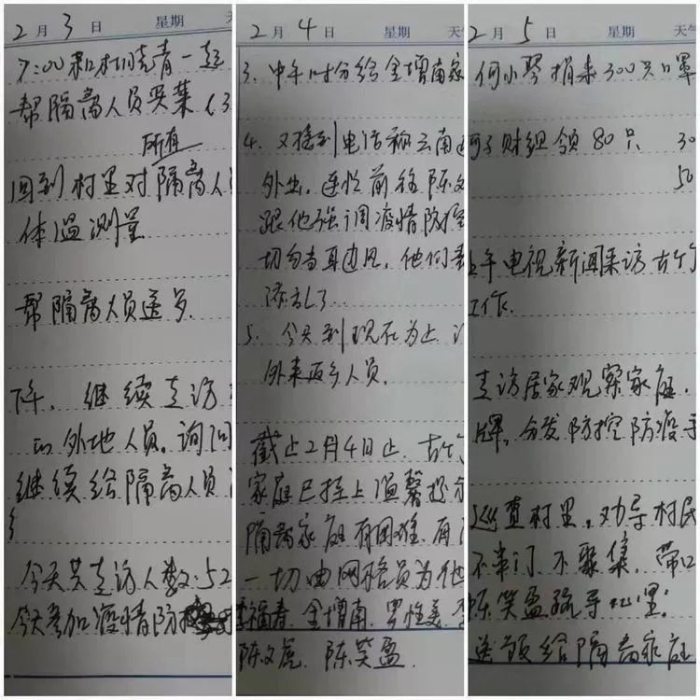 2月3日 星期
7:00和村晓青一起
帮隔离人员买菜(3
所有
回到村里对隔离人
体温测量
帮隔离人员送
下午,继续走访
的外地人员,询问
继续给隔离人员
今天共走访人数:52
今天参加疫情防
2月4日 星期 天
3、中午时分给金增南家
4、又接到电话称云南
外出,连忙前往陈文
跟他强调疫情防控
切勿当耳边风,他们表
添乱了
5、今天到现在为止
外来返乡人员.
截止2月4日止,古竹
家庭已挂上温馨提示
隔离家庭有困难,有
一切由网格员为他
李福春 金增南
陈文虎 陈笑盈
2月5日 星期 天
何小琴捐来300只口罩
财组领80只 30
50
上午电视新闻采访古竹
工作.
走访居家观察家庭
牌,分发防控防疫手
巡查村里,劝导村民
不串门 不聚集,带口
陈笑盈疏导心里;
送颐给隔离家庭